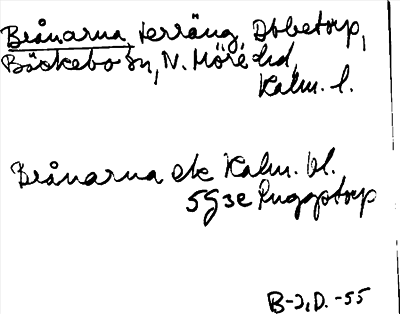 Brånarna, terräng, Ebbetorp,
Bäckebo sn, N. Möre hd,
Kalm. l.
Brånarna ek Kalm. bl.
5G3e Ruggstorp
B-J, D. -55